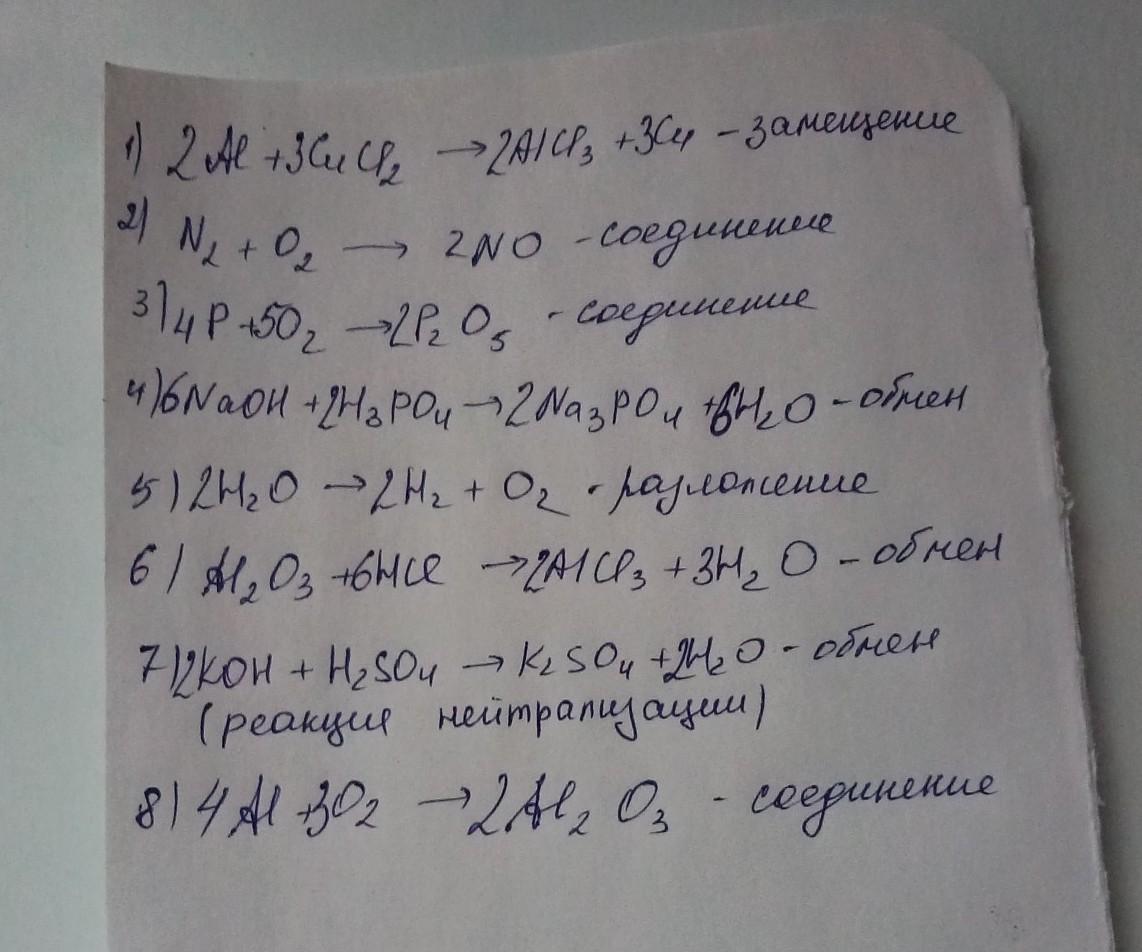 1) 2Al + 3CuCl₂ → 2AlCl₃ + 3Cu – замещение
2) N₂ + O₂ → 2NO – соединение
3) 4P + 5O₂ → 2P₂O₅ - соединение
4) 6NaOH + 2H₃PO₄ → 2Na₃PO₄ + 6H₂O – обмен
5) 2H₂O → 2H₂ + O₂ - разложение
6) Al₂O₃ + 6HCl → 2AlCl₃ + 3H₂O – обмен
7) 2KOH + H₂SO₄ → K₂SO₄ + 2H₂O - обмен
(реакция нейтрализации)
8) 4Al + 3O₂ → 2Al₂O₃ - соединение